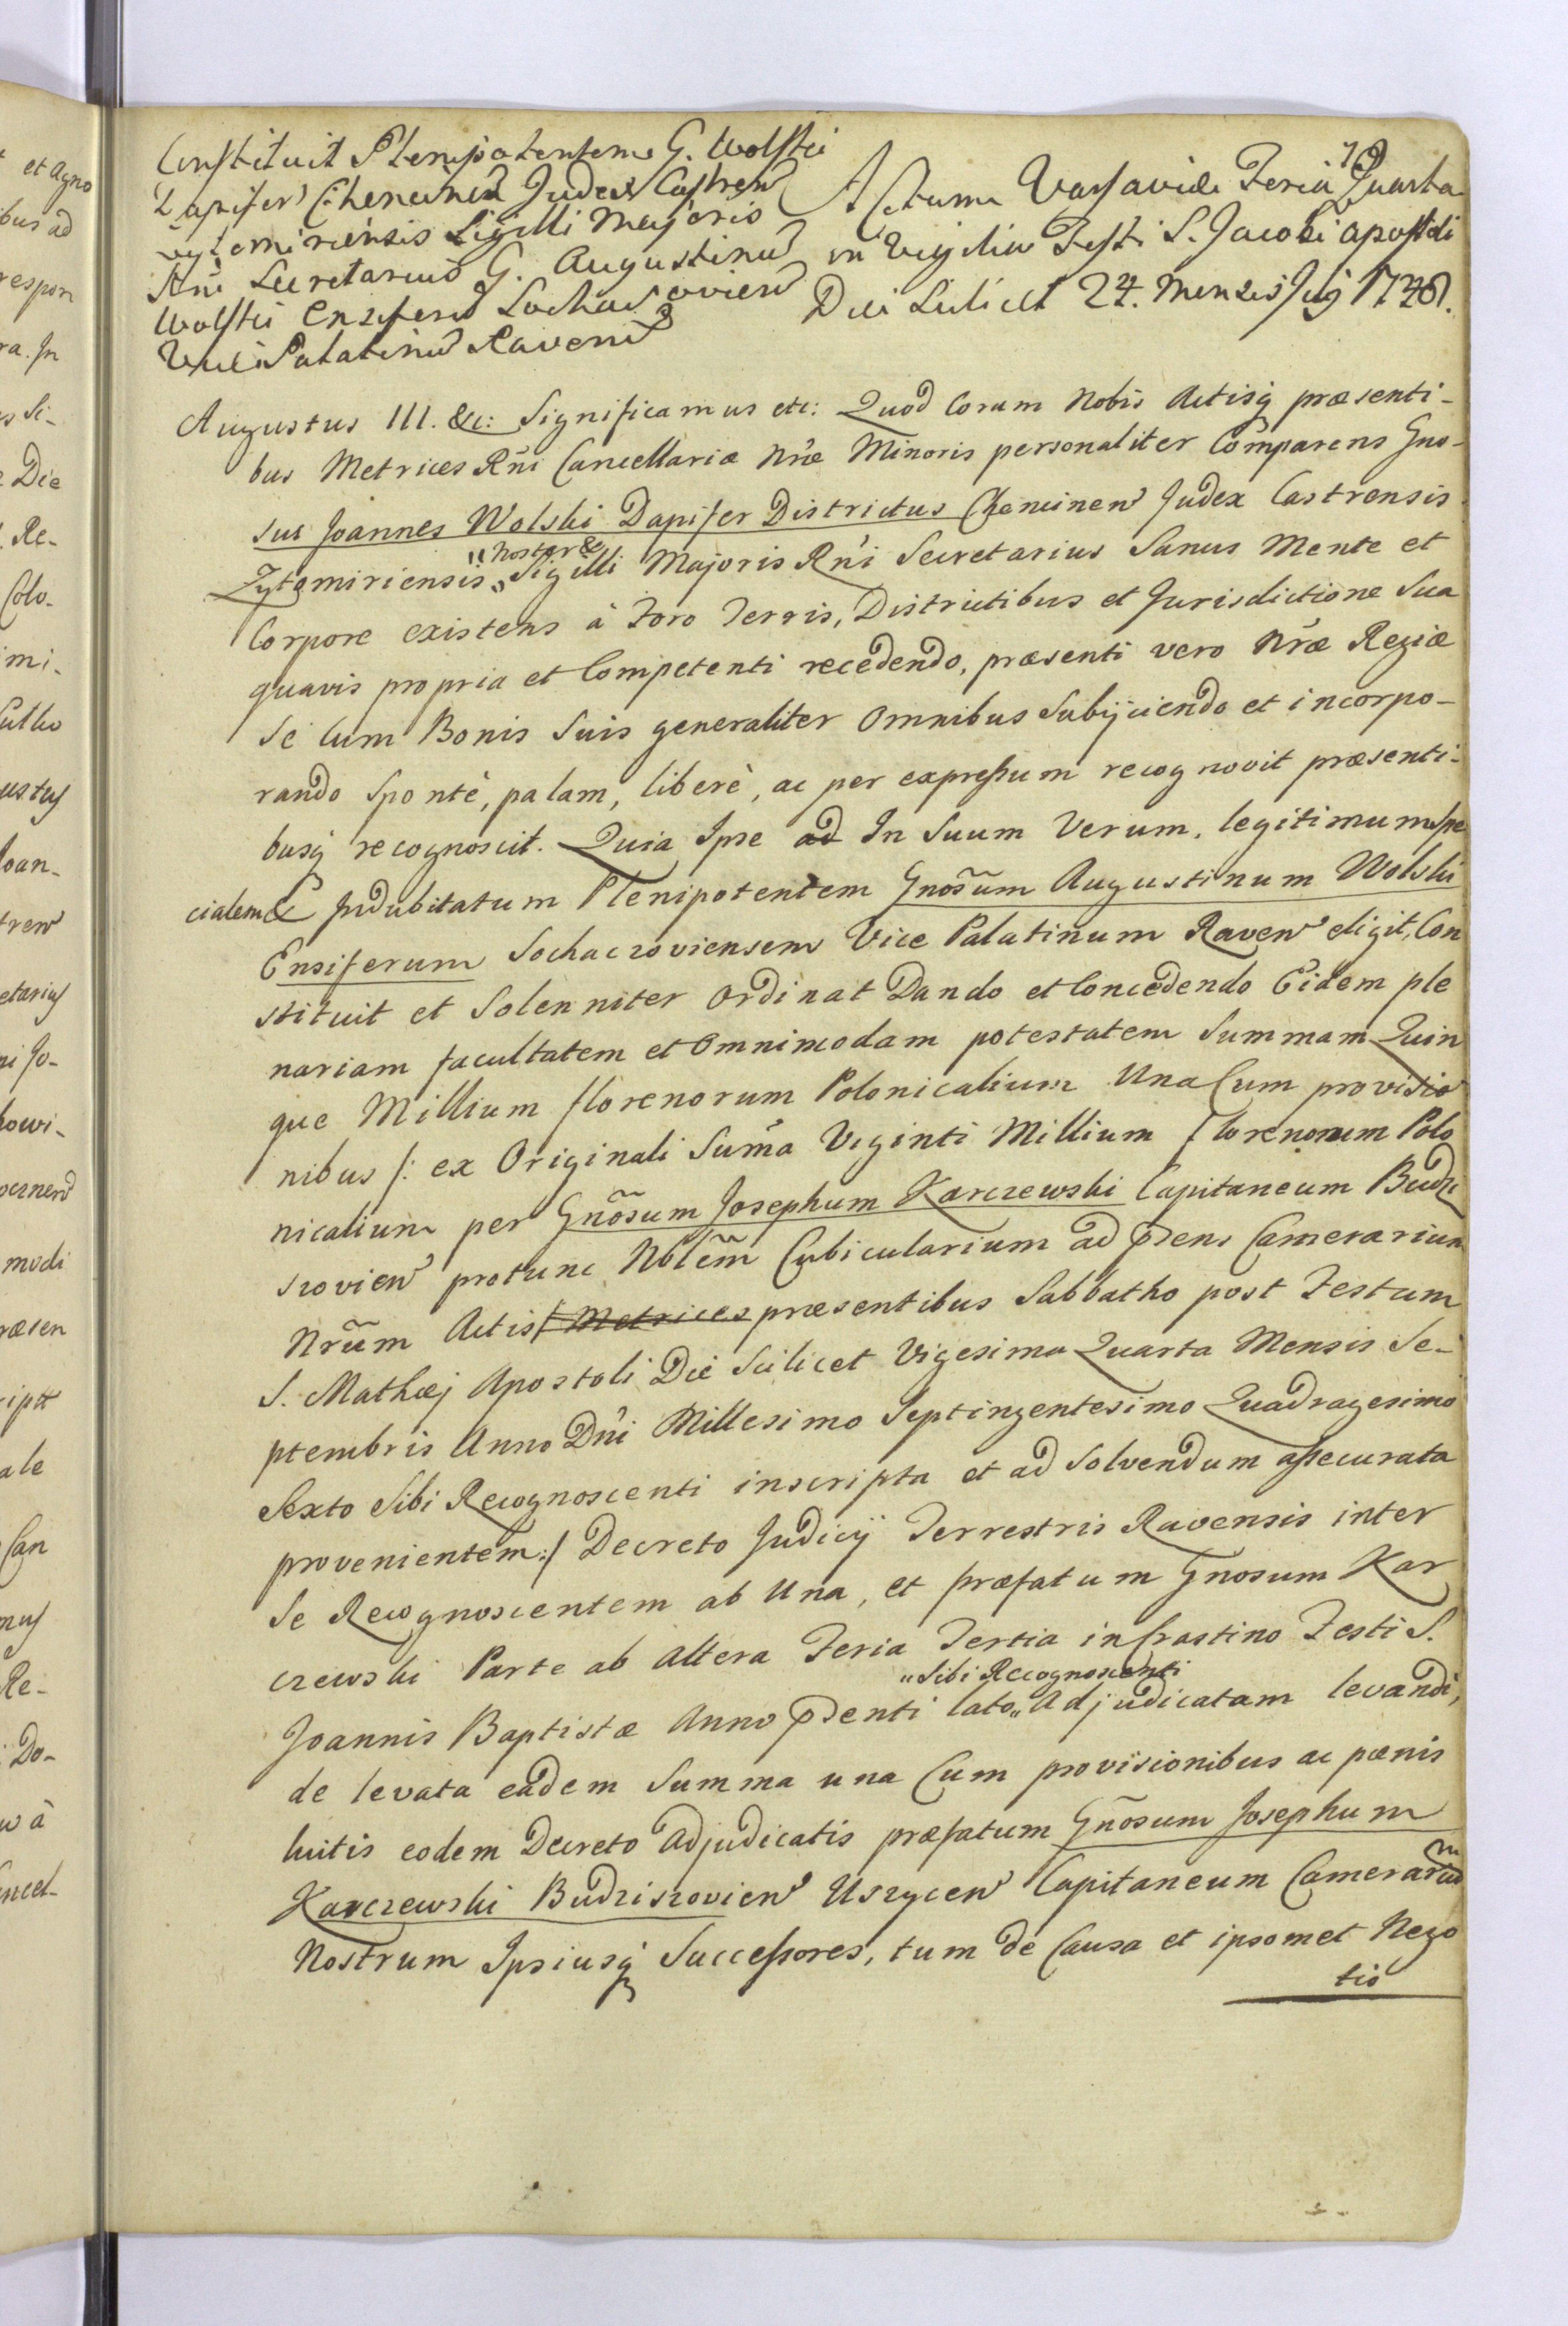 Constituit Plenipotentem G. Wolski
Dapifer Chencinen Judex Castren
Zytomiriensis Sigilli Majoris
Rni Secretarius G. Augustinum
Wolski Ensiferum Sochaczovien
Vice Palatinum Raven
Actum Varsaviæ Feria Quarta
in Vigilia Festi S. Jacobi Apostoli
Die Scilicet 24. Mensis Julij 1748.
Augustus III. &c: Significamus etc: Quod Coram Nobis Actisq præsenti-
bus Metrices Rñi Cancellariæ Nr̃æ Minoris personaliter Comparens Gno-
sus Joannes Wolski Dapifer Districtus Chencinen Judex Castrensis
Zytomiriensis „ noster & „ Sigilli Majoris Rñi Secretarius Sanus Mente et
Corpore existens à Foro Terris, Districtibus et Jurisdictione Sua
quavis propria et Competenti recedendo, præsenti vero Nr̃æ Regiæ
se cum Bonis suis generaliter Omnibus Subijciendo et incorpo-
rando Spontè, palam, liberè, ac per expressum recognovit præsenti-
busq recognoscit. Quia Ipse ad In Suum Verum, legitimum, spe
cialem & Indubitatum Plenipotentem Gnos̃um Augustinum Wolski
Ensiferum Sochaczoviensem Vice Palatinum Raven eligit, Con
stituit et Solenniter Ordinat Dando et Concedendo Eidem ple
nariam facultatem et Omnimodam potestatem Summam Quin
que Millium florenorum Polonicalium Una Cum provisio
nibus /: ex Originali Sum̃a Viginti Millium florenorum Polo
nicalium per Gnõsum Josephum Karczewski Capitaneum Budzi
szovien protunc Nolẽm Cubicularium ad præns Camerarium
Nrũm Actis Metrices præsentibus Sabbatho post Festum
S. Mathæj Apostoli Die Scilicet Vigesima Quarta Mensis Se-
ptembris Anno Dñi Millesimo Septingentesimo Quadragesimo
Sexto Sibi Recognoscenti inscripta et ad Solvendum assecurata
provenientem :/ Decreto Judicij Terrestris Ravensis inter
Se Recognoscentem ab Una, et præfatum Gnosum Kar
czewski Parte ab Altera Feria Tertia in Crastino Festi S.
Joannis Baptistæ Anno prænti lato „ Sibi Recognoscenti „ Adjudicatam levandi,
de levata eadem Summa una Cum provisionibus ac pœnis
luitis eodem Decreto Adjudicatis præfatum Gñosum Josephum
Karczewski Budziszovien Uszycen Capitaneum Camerarium
Nostrum Ipsiusq Successores, tum de Causa et ipsomet Nego
tio